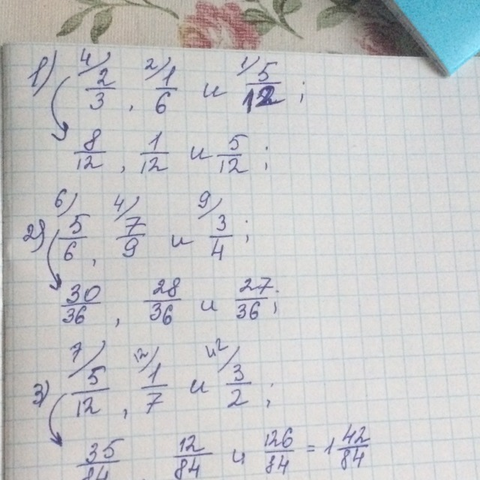 1) 4/ 2/3, 2/ 1/6 и 1/ 5/12;
8/12, 1/12 и 5/12;
2) 6/ 5/6, 4/ 7/9 и 9/ 3/4;
30/36, 28/36 и 27/36;
3) 7/ 5/12, 12/ 1/7 и 42/ 3/2;
35/84, 12/84 и 126/84 = 1 42/84